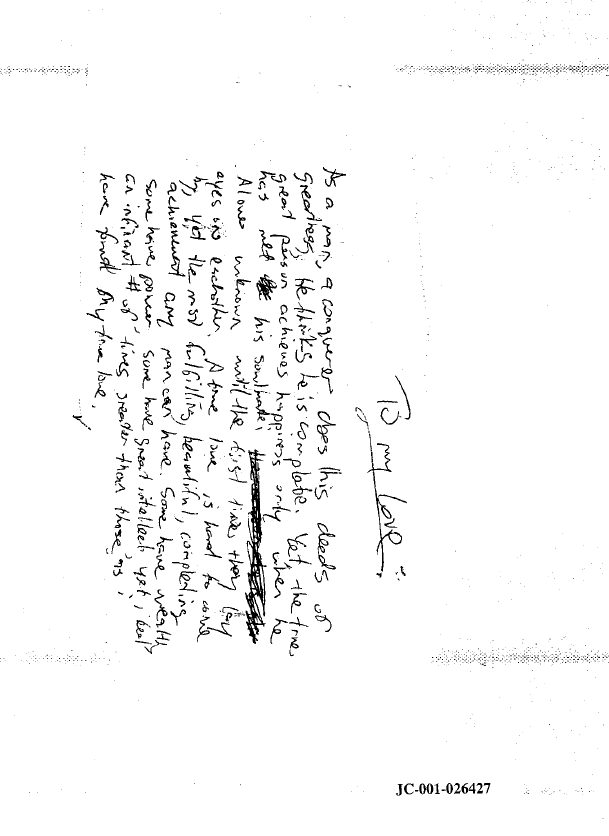 To my love:
As a man, a conquerer does his deeds of
Greatness, He thinks he is complete. Yet, the true
great person achieves happiness only when he
has met his soulmate.
A love unknown until the first time they lay
eyes on eachother. A true love is hard to come
by, yet the most fulfilling, beautiful, completing
achievement any man can have. Some have wealth
some have power some have great intellect yet, I
an infinant # of times greater than those, as I
have found my true love.
JC-001-026427